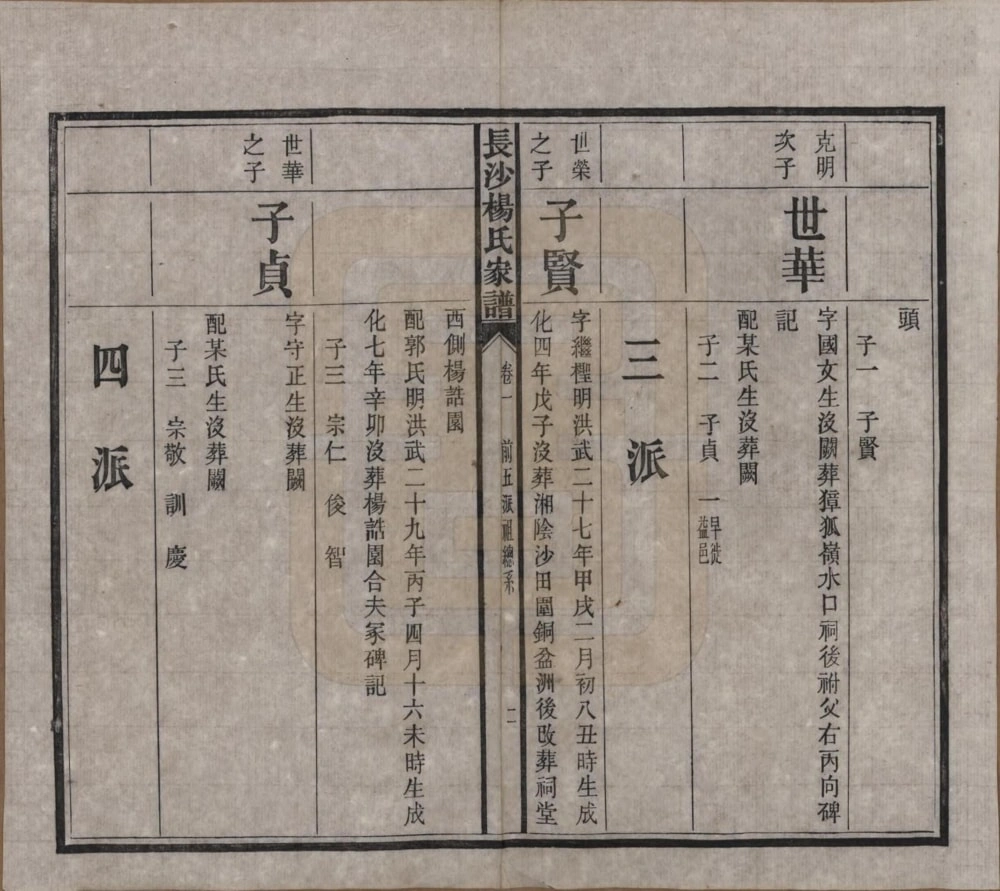 頭
子一　子賢
克明
次子
世華
字國文生沒闕葬獐狐嶺水口祠後祔父右丙向碑
記
配某氏生沒葬闕
子二　子貞　一早徙
益邑
三派
世榮
之子
子賢
字繼樫明洪武二十七年甲戌二月初八丑時生成
化四年戊子沒葬湘陰沙田圍銅盆洲後改葬祠堂
長沙楊氏家譜
卷一　前五派祖總系　二
西側楊誥園
配郭氏明洪武二十九年丙子四月十六未時生成
化七年辛卯沒葬楊誥園合夫冢碑記
子三　宗仁　俊　智
世華
之子
子貞
字守正生沒葬闕
配某氏生沒葬闕
子三　宗敬　訓　慶
四派